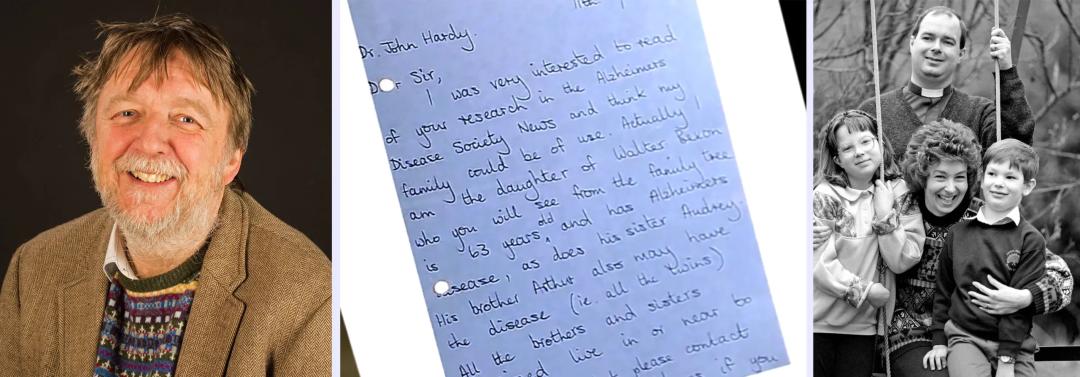 11th
Dr. John Hardy.
Sir,
I was very interested to read
of your research in the Alzheimers
Disease Society News and think my
family could be of use. Actually I
am the daughter of Walter Bexon
who you will see from the family tree
is 63 years old and has Alzheimers
isease, as does his sister Audrey.
His brother Arthur also may have
the disease (ie. all the twins)
All the brothers and sisters
live in or near
please contact
if you